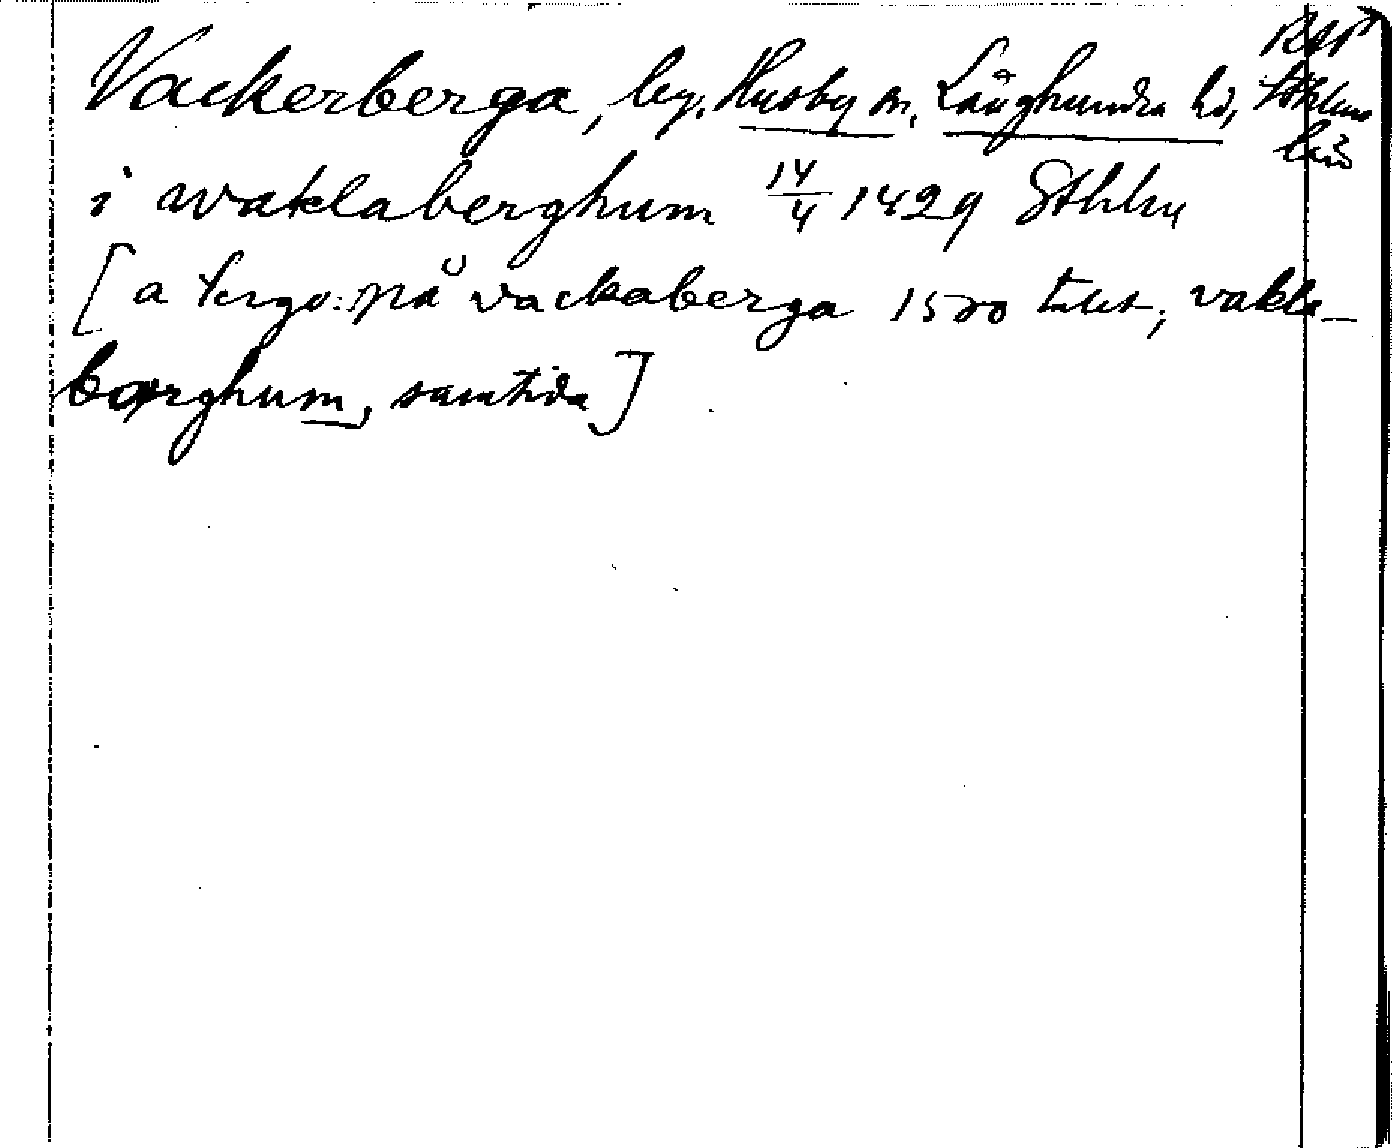 RAP
Vackerberga, by, Husby sn, Långhundra hd, Sthlms
län
i waklaberghum 14/4 1429 Sthlm
[a tergo: på vackaberga 1500 talet, vakla-
berghum, samtida]